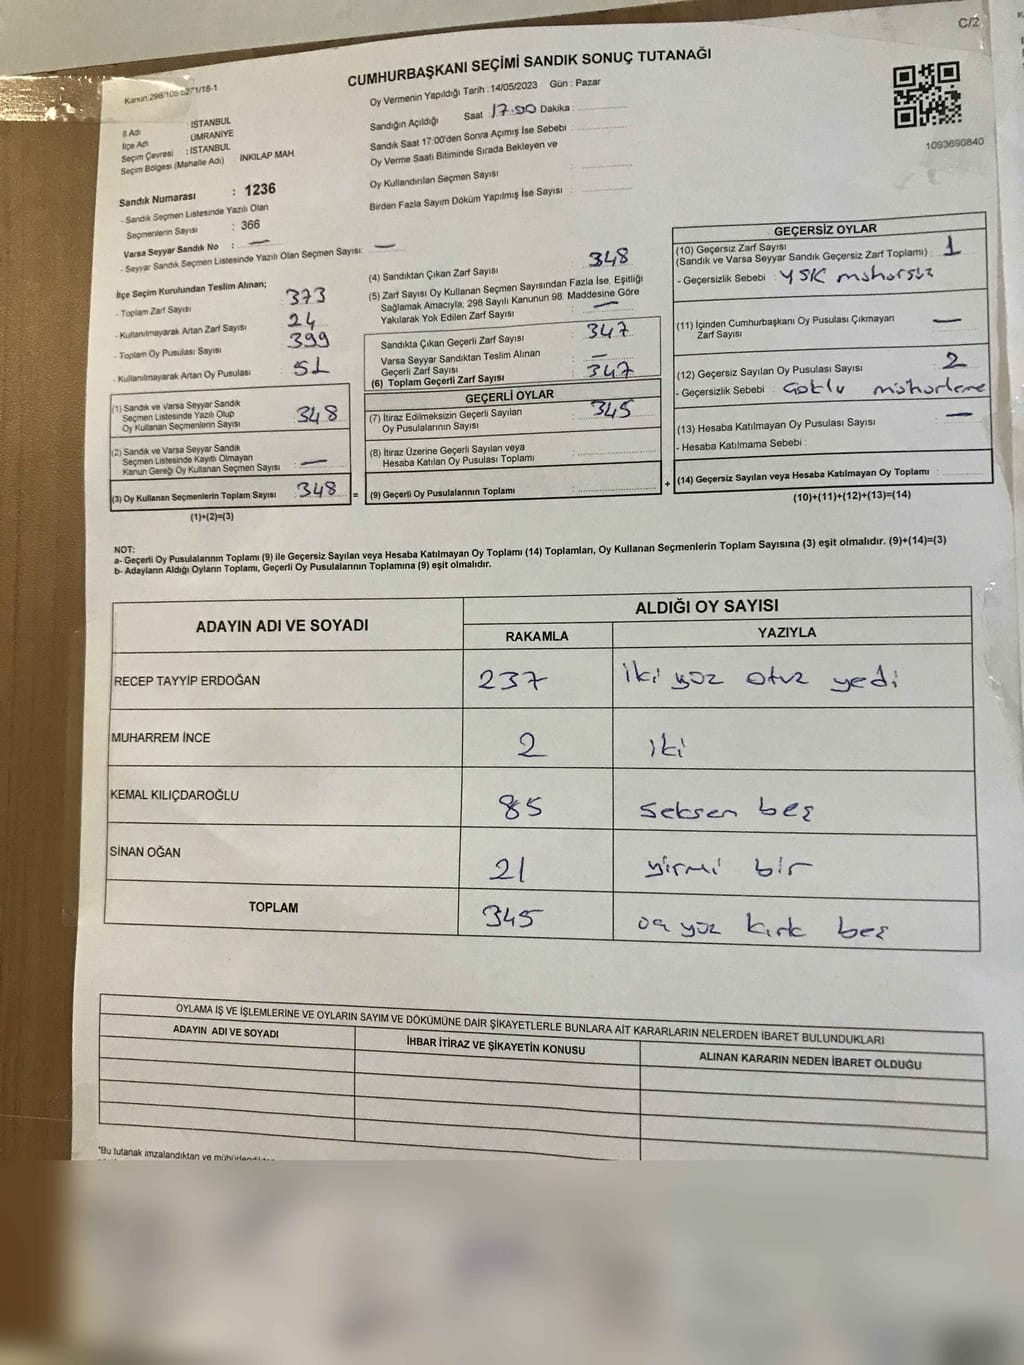 C/2
CUMHURBAŞKANI SEÇİMİ SANDIK SONUÇ TUTANAĞI
Kanun:298/105 6271/18-1
Oy Vermenin Yapıldığı Tarih : 14/05/2023 Gün : Pazar
İl Adı : İSTANBUL
İlçe Adı : ÜMRANİYE
Seçim Çevresi : İSTANBUL
Seçim Bölgesi (Mahalle Adı) İNKILAP MAH.
Sandık Numarası : 1236
- Sandık Seçmen Listesinde Yazılı Olan
Seçmenlerin Sayısı : 366
Varsa Seyyar Sandık No : —
- Seyyar Sandık Seçmen Listesinde Yazılı Olan Seçmen Sayısı: —
Sandığın Açıldığı Saat 17.00 Dakika :
Sandık Saat 17:00'den Sonra Açımış İse Sebebi :
Oy Verme Saati Bitiminde Sırada Bekleyen ve
Oy Kullandırılan Seçmen Sayısı :
Birden Fazla Sayım Döküm Yapılmış İse Sayısı :
1093690840
İlçe Seçim Kurulundan Teslim Alınan;
- Toplam Zarf Sayısı : 373
- Kullanılmayarak Artan Zarf Sayısı : 24
- Toplam Oy Pusulası Sayısı : 399
- Kullanılmayarak Artan Oy Pusulası : 51
(1) Sandık ve Varsa Seyyar Sandık
Seçmen Listesinde Yazılı Olup
Oy Kullanan Seçmenlerin Sayısı : 348
(2) Sandık ve Varsa Seyyar Sandık
Seçmen Listesinde Kayıtlı Olmayan
Kanun Gereği Oy Kullanan Seçmen Sayısı : —
(3) Oy Kullanan Seçmenlerin Toplam Sayısı : 348 =
(1)+(2)=(3)
(4) Sandıktan Çıkan Zarf Sayısı : 348
(5) Zarf Sayısı Oy Kullanan Seçmen Sayısından Fazla İse, Eşitliği
Sağlamak Amacıyla, 298 Sayılı Kanunun 98. Maddesine Göre
Yakılarak Yok Edilen Zarf Sayısı : —
Sandıkta Çıkan Geçerli Zarf Sayısı : 347
Varsa Seyyar Sandıktan Teslim Alınan
Geçerli Zarf Sayısı : —
(6) Toplam Geçerli Zarf Sayısı : 347
GEÇERLİ OYLAR
(7) İtiraz Edilmeksizin Geçerli Sayılan
Oy Pusulalarının Sayısı : 345
(8) İtiraz Üzerine Geçerli Sayılan veya
Hesaba Katılan Oy Pusulası Toplamı :
(9) Geçerli Oy Pusulalarının Toplamı : +
GEÇERSİZ OYLAR
(10) Geçersiz Zarf Sayısı
(Sandık ve Varsa Seyyar Sandık Geçersiz Zarf Toplamı) : 1
- Geçersizlik Sebebi : YSK mühürsüz
(11) İçinden Cumhurbaşkanı Oy Pusulası Çıkmayan
Zarf Sayısı : —
(12) Geçersiz Sayılan Oy Pusulası Sayısı : 2
- Geçersizlik Sebebi : Çoklu mühürleme
(13) Hesaba Katılmayan Oy Pusulası Sayısı : —
- Hesaba Katılmama Sebebi :
(14) Geçersiz Sayılan veya Hesaba Katılmayan Oy Toplamı :
(10)+(11)+(12)+(13)=(14)
NOT:
a- Geçerli Oy Pusulalarının Toplamı (9) ile Geçersiz Sayılan veya Hesaba Katılmayan Oy Toplamı (14) Toplamları, Oy Kullanan Seçmenlerin Toplam Sayısına (3) eşit olmalıdır. (9)+(14)=(3)
b- Adayların Aldığı Oyların Toplamı, Geçerli Oy Pusulalarının Toplamına (9) eşit olmalıdır.
ADAYIN ADI VE SOYADI ALDIĞI OY SAYISI
RAKAMLA YAZIYLA
RECEP TAYYİP ERDOĞAN 237 iki yüz otuz yedi
MUHARREM İNCE 2 iki
KEMAL KILIÇDAROĞLU 85 seksen beş
SİNAN OĞAN 21 yirmi bir
TOPLAM 345 üç yüz kırk beş
OYLAMA İŞ VE İŞLEMLERİNE VE OYLARIN SAYIM VE DÖKÜMÜNE DAİR ŞİKAYETLERLE BUNLARA AİT KARARLARIN NELERDEN İBARET BULUNDUKLARI
ADAYIN ADI VE SOYADI İHBAR İTİRAZ VE ŞİKAYETİN KONUSU ALINAN KARARIN NEDEN İBARET OLDUĞU
*Bu tutanak imzalandıktan ve